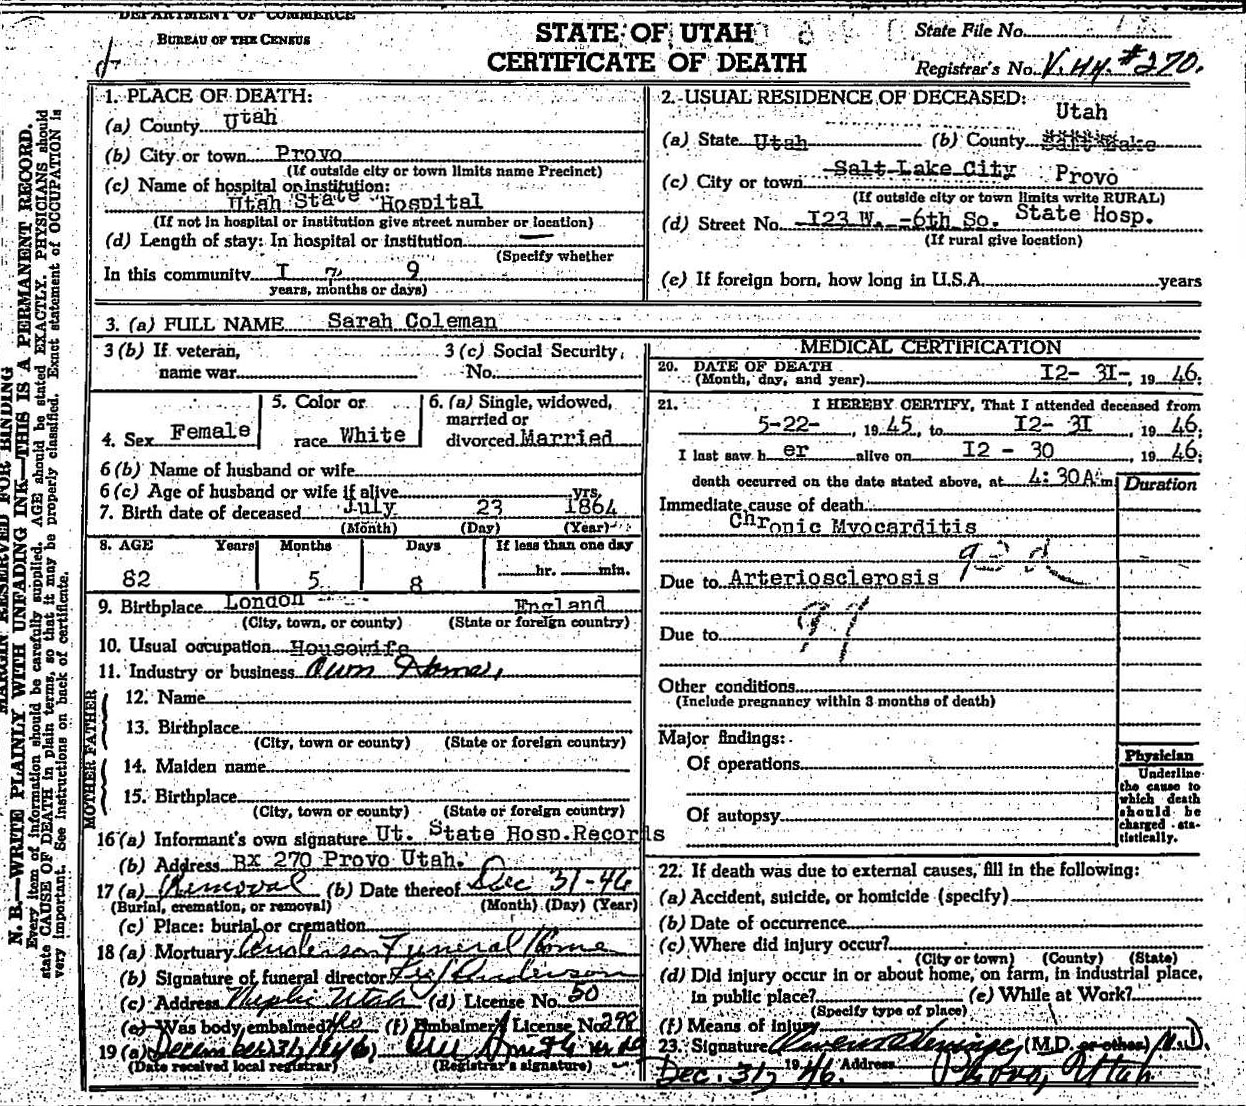 DEPARTMENT OF COMMERCE
BUREAU OF THE CENSUS
STATE OF UTAH
CERTIFICATE OF DEATH
State File No.
Registrar's No. V.44. #270.
MARGIN RESERVED FOR BINDING
N. B.—WRITE PLAINLY WITH UNFADING INK—THIS IS A PERMANENT RECORD.
Every item of information should be carefully supplied. AGE should be stated EXACTLY. PHYSICIANS should
state CAUSE OF DEATH in plain terms, so that it may be properly classified. Exact statement of OCCUPATION is
very important. See instructions on back of certificate.
1. PLACE OF DEATH:
(a) County Utah
(b) City or town Provo
(If outside city or town limits name Precinct)
(c) Name of hospital or institution:
Utah State Hospital
(If not in hospital or institution give street number or location)
(d) Length of stay: In hospital or institution —
(Specify whether
In this community I 7 9
years, months or days)
2. USUAL RESIDENCE OF DECEASED:
Utah
(a) State Utah (b) County Salt Lake
(c) City or town Salt Lake City Provo
(If outside city or town limits write RURAL)
(d) Street No. I23 W. -6th So. State Hosp.
(If rural give location)
(e) If foreign born, how long in U.S.A. years
3. (a) FULL NAME Sarah Coleman
3 (b) If veteran, 3 (c) Social Security
name war No.
4. Sex Female
5. Color or
race White
6. (a) Single, widowed,
married or
divorced Married
6 (b) Name of husband or wife
6 (c) Age of husband or wife if alive yrs.
7. Birth date of deceased July 23 1864
(Month) (Day) (Year)
8. AGE Years Months Days If less than one day
82 5 8 hr. min.
9. Birthplace London England
(City, town, or county) (State or foreign country)
10. Usual occupation Housewife
11. Industry or business Own Home,
FATHER
12. Name
13. Birthplace
(City, town or county) (State or foreign country)
MOTHER
14. Maiden name
15. Birthplace
(City, town or county) (State or foreign country)
16 (a) Informant's own signature Ut. State Hosp. Records
(b) Address Bx 270 Provo Utah.
17 (a) Removal (b) Date thereof Dec 31-46
(Burial, cremation, or removal) (Month) (Day) (Year)
(c) Place: burial or cremation
18 (a) Mortuary Anderson Funeral Home
(b) Signature of funeral director Anderson
(c) Address Nephi Utah (d) License No. 50
(e) Was body embalmed? No (f) Embalmer's License No. 298
19 (a) December 31, 1946 Smith
(Date received local registrar) (Registrar's signature)
MEDICAL CERTIFICATION
20. DATE OF DEATH
(Month, day, and year) I2- 3I-, 19 46.
21. I HEREBY CERTIFY, That I attended deceased from
5-22-, 19 45, to I2- 3I, 19 46;
I last saw h er alive on I2 - 30, 19 46;
death occurred on the date stated above, at 4:30A m
Duration
Immediate cause of death
Chronic Myocarditis
93d
Due to Arteriosclerosis
97
Due to
Other conditions
(Include pregnancy within 3 months of death)
Major findings:
Of operations
Of autopsy
Physician
Underline
the cause to
which death
should be
charged sta-
tistically.
22. If death was due to external causes, fill in the following:
(a) Accident, suicide, or homicide (specify)
(b) Date of occurrence
(c) Where did injury occur?
(City or town) (County) (State)
(d) Did injury occur in or about home, on farm, in industrial place,
in public place? (e) While at Work?
(Specify type of place)
(f) Means of injury
23. Signature Owen (M.D. or other) M.D.
Dec. 31, 1946. Address Provo, Utah